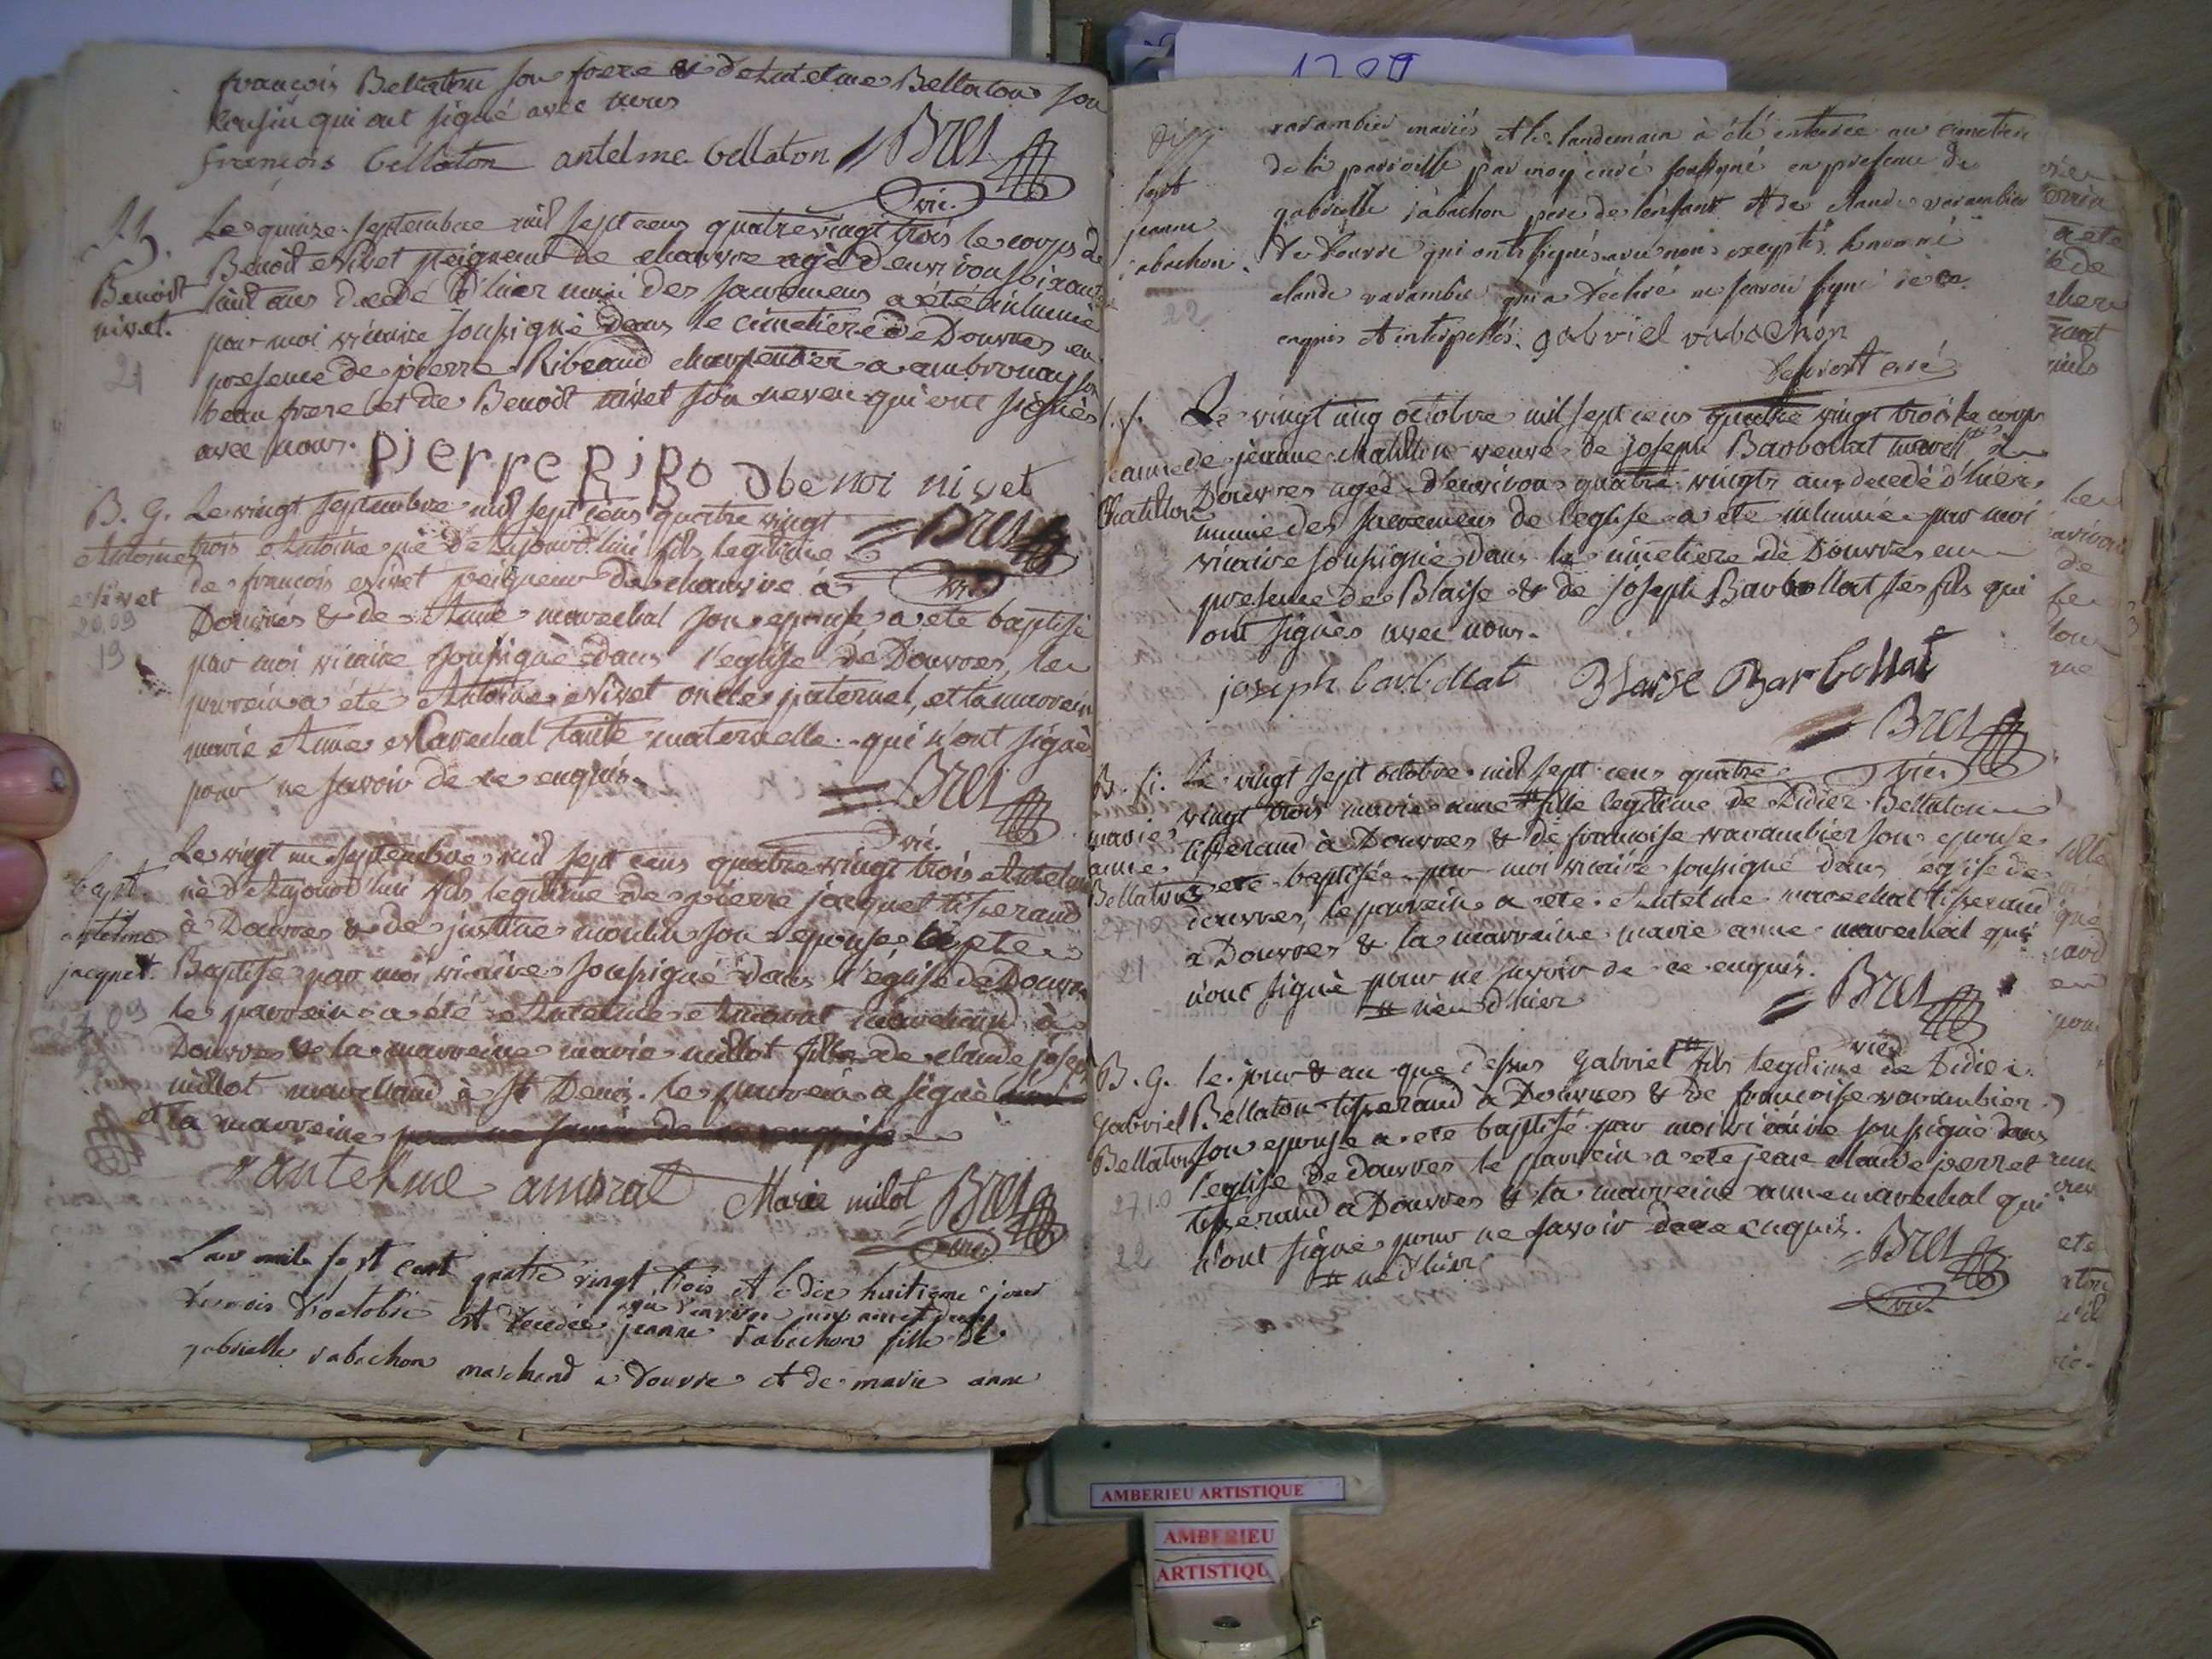 françois Bellaton son frere & d'Antelme Bellaton son
Cousin qui ont signé avec nous
françois bellaton antelme bellaton Bret
vic.
S. B.
Benoît
nivet.
21
Le quinze septembre mil sept cens quatre vingt trois le corps de
Benoît Nivet peigneur de chanvre agé d'environ soixante
huit ans decedé d'hier muni des sacremens a été inhumé
par moi vicaire soussigné dans le cimetiere de Douvres en
presence de pierre Ribeaud charpentier a ambronay son
beau frere et de Benoît nivet son neveu qui ont signés
avec nous.
pierre RiBo benoi nivet
Bret
vic.
B. G.
Antoine
Nivet
20.09
19
Le vingt septembre mil sept cens quatre vingt
trois Antoine né d'Aujourd'hui fils legitime
de françois Nivet peigneur de chanvre à
Douvres & de Anne marechal son epouse a ete baptisé
par moi vicaire soussigné dans l'eglise de Douvres, le
parrein a été Antoine Nivet oncle paternel, et la marreine
marie Anne Marechal tante maternelle qui n'ont signé
pour ne savoir de ce enquis.
Bret
vic.
bapt.
antelme
jacquet.
Le vingt un septembre mil sept cens quatre vingt trois Antelme
né d'Aujourd'hui fils legitime de pierre jacquet tisserand
à Douvres & de justine moulin son epouse a ete
Baptisé par moi vicaire soussigné dans l'église de Douvres
le parrein a été Antelme Amorat marchand à
Douvres & la marreine marie millot fille de claude joseph
millot marchand à St Denis. le parrein a signé
et la marreine pour ne savoir de ce enquise
antelme amorat Marie milot Bret
vic.
L'an mil sept cent quatre vingt trois et le dix huitieme jour
du mois d'octobre est décédée jeanne rabachon fille de
agée d'environ
gabrielle rabachon marchand a douvre et de marie anne
1789
sept
jeanne
rabachon.
22
varambier mariés et le landemain à été enterrée au cimetiere
de la parroisse par moy curé soussigné en presence de
gabrielle rabachon pere de l'enfant et de claude varambier
de douvre qui ont signés avec nous exceptés
claude varambier qui a déclaré ne savoir signé de ce
enquis et interpellés. gabriel rabachon
curé
S. f.
jeanne
Chatillon
Le vingt unq octobre mil sept cens quatre vingt trois le corps
de jeanne chatillon veuve de joseph Barbollat de
Douvres agée d'environ quatre vingts ans decedé d'hier
munie des sacremens de l'eglise a ete inhumée par moi
vicaire soussigné dans le cimetiere de Douvres en
presence de Blaise & de joseph Barbollat ses fils qui
ont signés avec nous.
joseph barbollat Blaise Barbollat
Bret
vic.
B. fi.
marie
anne
Bellaton
27.10
21
Le vingt sept octobre mil sept cens quatre
vingt trois marie anne # fille legitime de Didier Bellaton
tisserand à Douvres & de francoise varambier son epouse
a ete baptisée par moi vicaire soussigné dans l'eglise de
douvres, le parrein a ete Antelme marechal tisserand
a Douvres & la marraine marie anne marechal qui
n'ont signé pour ne savoir de ce enquis.
# née d'hier
Bret
vic.
B. G.
Gabriel
Bellaton
27.10
22
le jour & an que dessus Gabriel # fils legitime de Didier
Bellaton tisserand à Douvres & de francoise varambier
son epouse a ete baptisé par moi vicaire soussigné dans
l'eglise de douvres le parrein a ete jean claude perret
tisserand a Douvres & la marreine anne marechal qui
n'ont signé pour ne savoir de ce enquis.
# né d'hier
Bret
vic.
AMBERIEU ARTISTIQUE
AMBERIEU
ARTISTIQU